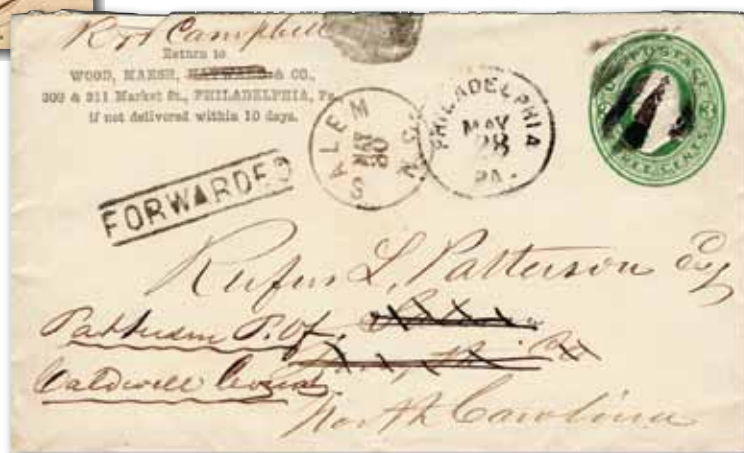 Campbell
Return to
WOOD, MARSH, HAYWARD & CO.,
309 & 311 Market St., PHILADELPHIA, Pa.
if not delivered within 10 days.
SALEM N.C.
MAY
30
PHILADELPHIA
MAY
28
PA.
U.S. POSTAGE
THREE CENTS
3
FORWARDED
Rufus L. Patterson Esq
Patterson P.Of.
Caldwell County
North Carolina